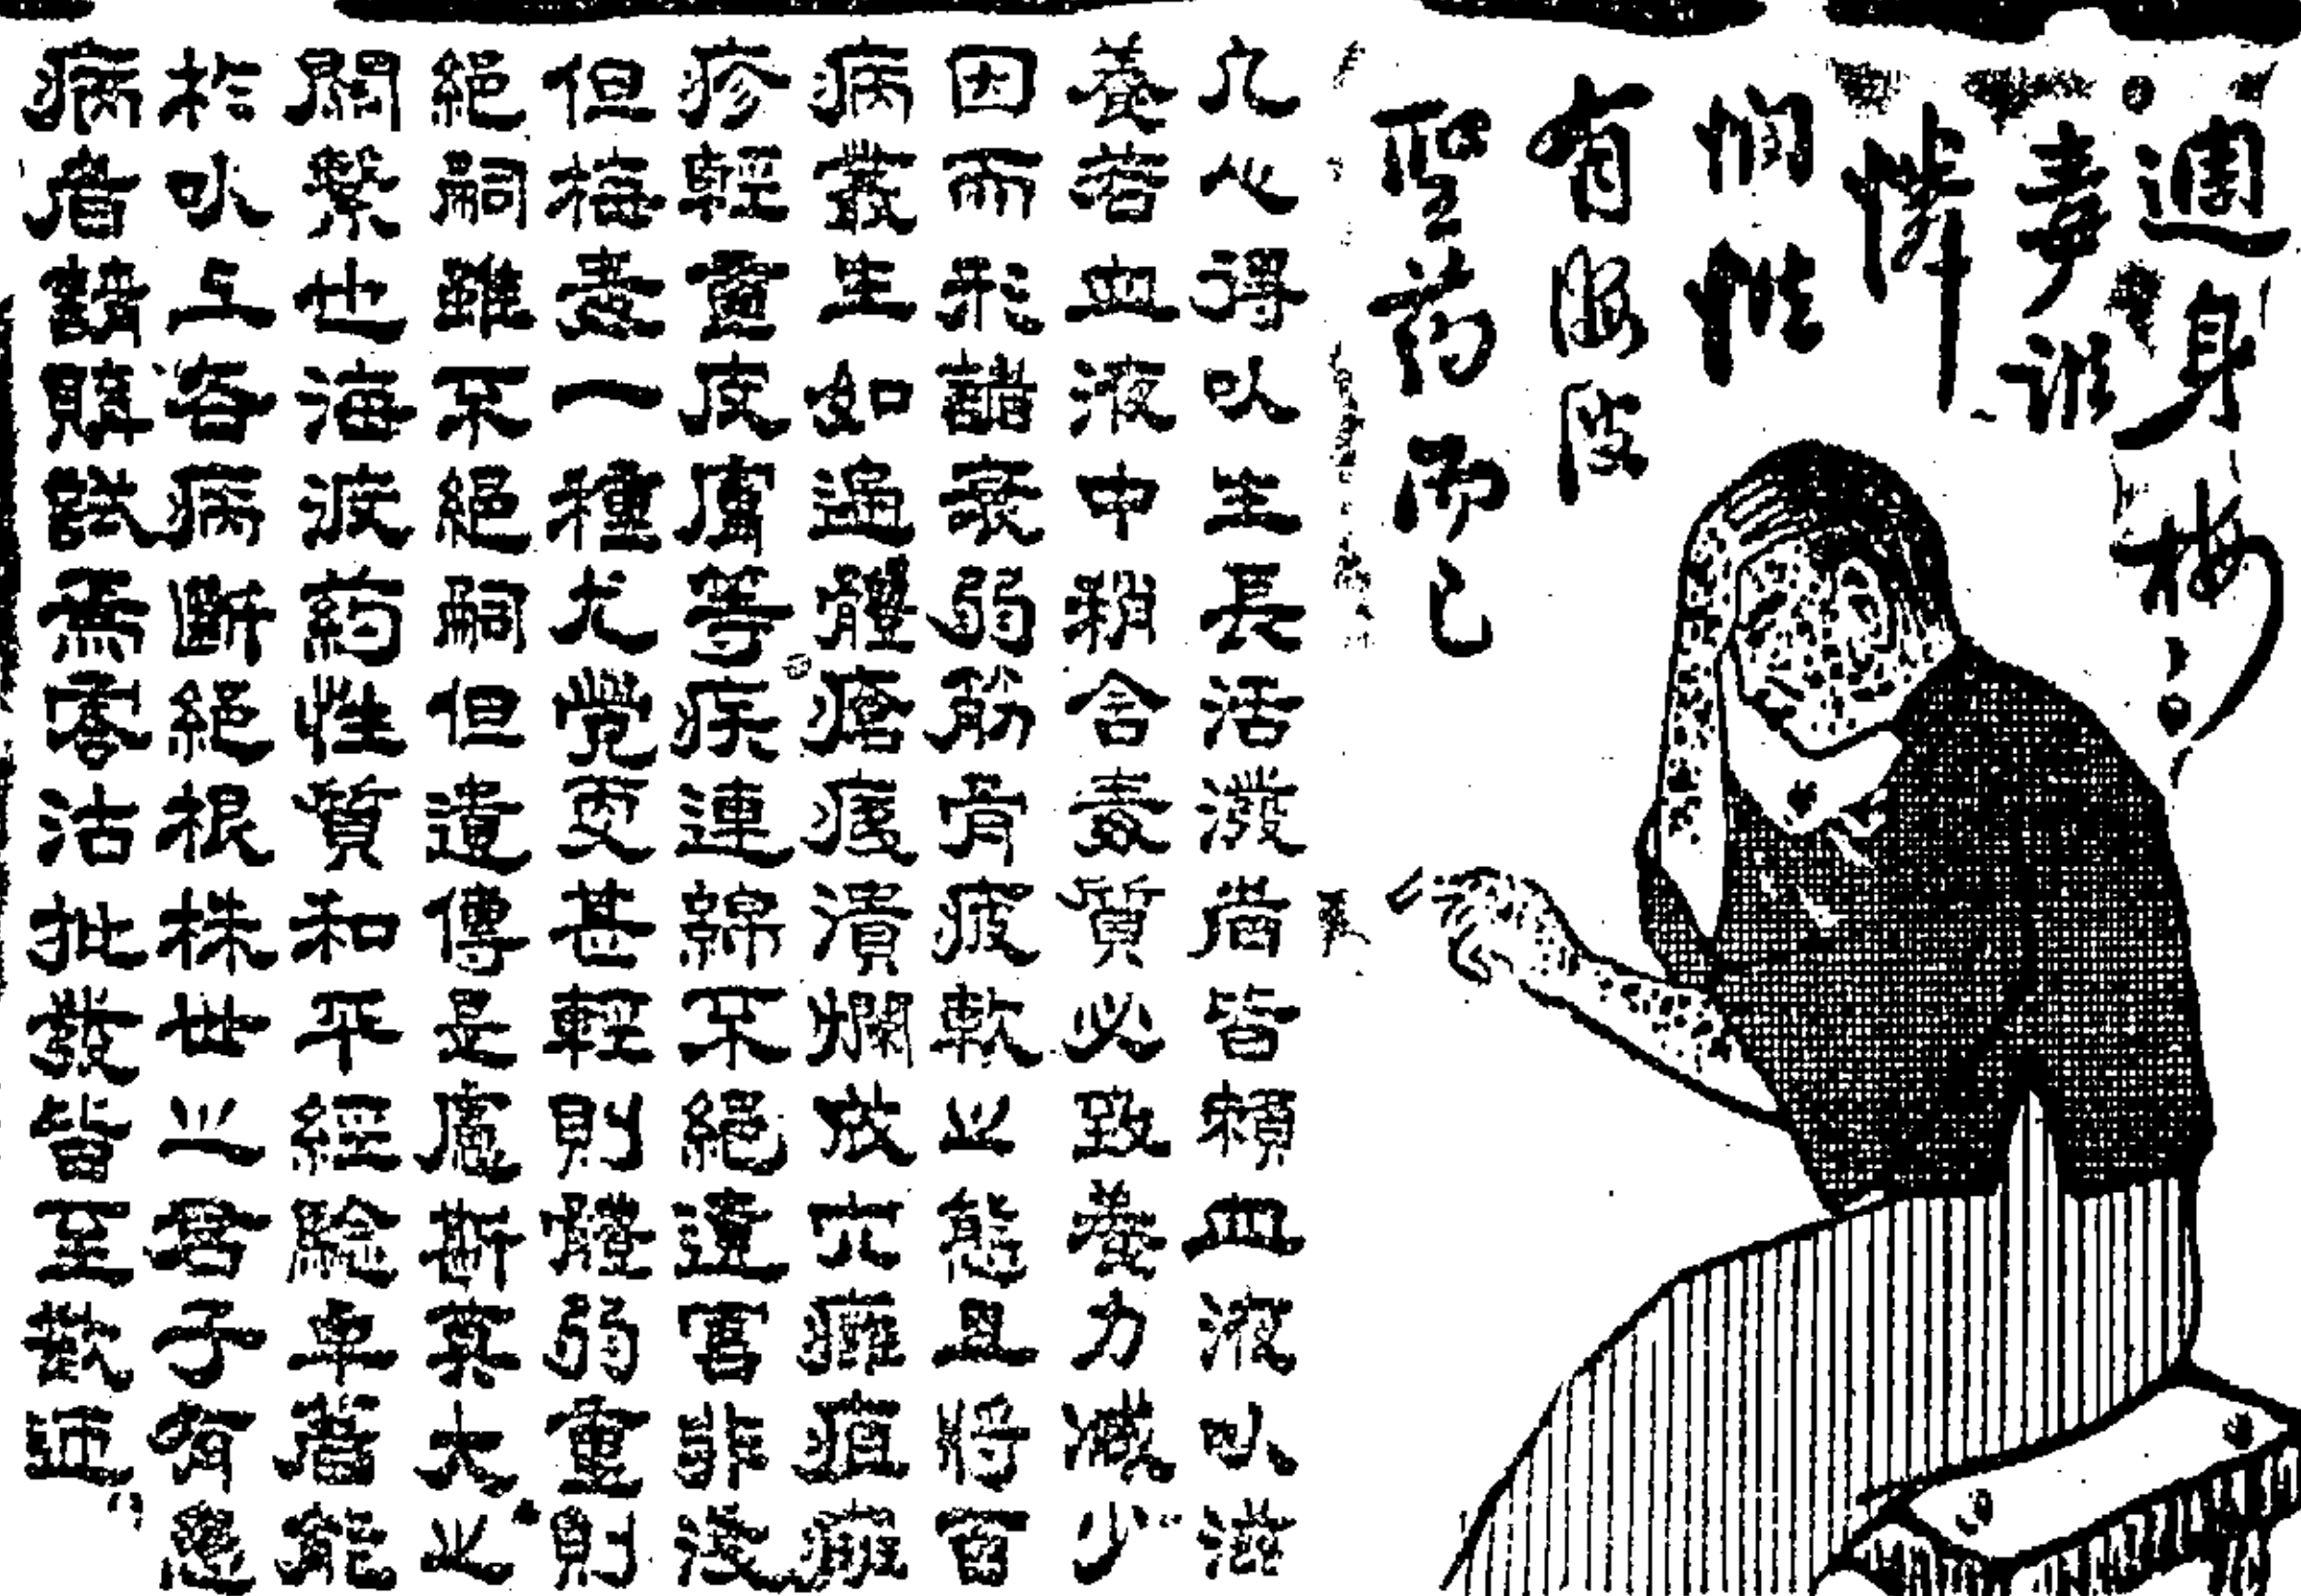 週身梅
毒誰
憐
憫惟
有海波
聖药而已
凡心得以生長活潑者皆賴血液以滋
養若血液中稍含毒質必致養力減少
因而形諸衰弱筋骨疲軟之態且將百
病叢生如遍體瘡痍潰爛成穴癰疽癬
疹輕重皮膚等疾連綿不絕遺害非淺
但梅毒一種尤覺更甚輕則體弱重則
絕嗣雖不絕嗣但遺傳是慮斯莫大之
關繫也海波药性質和平經驗卓著能
於以上各病斷絕根株世之君子有患
病者請購試焉零沽批發皆至歡迎